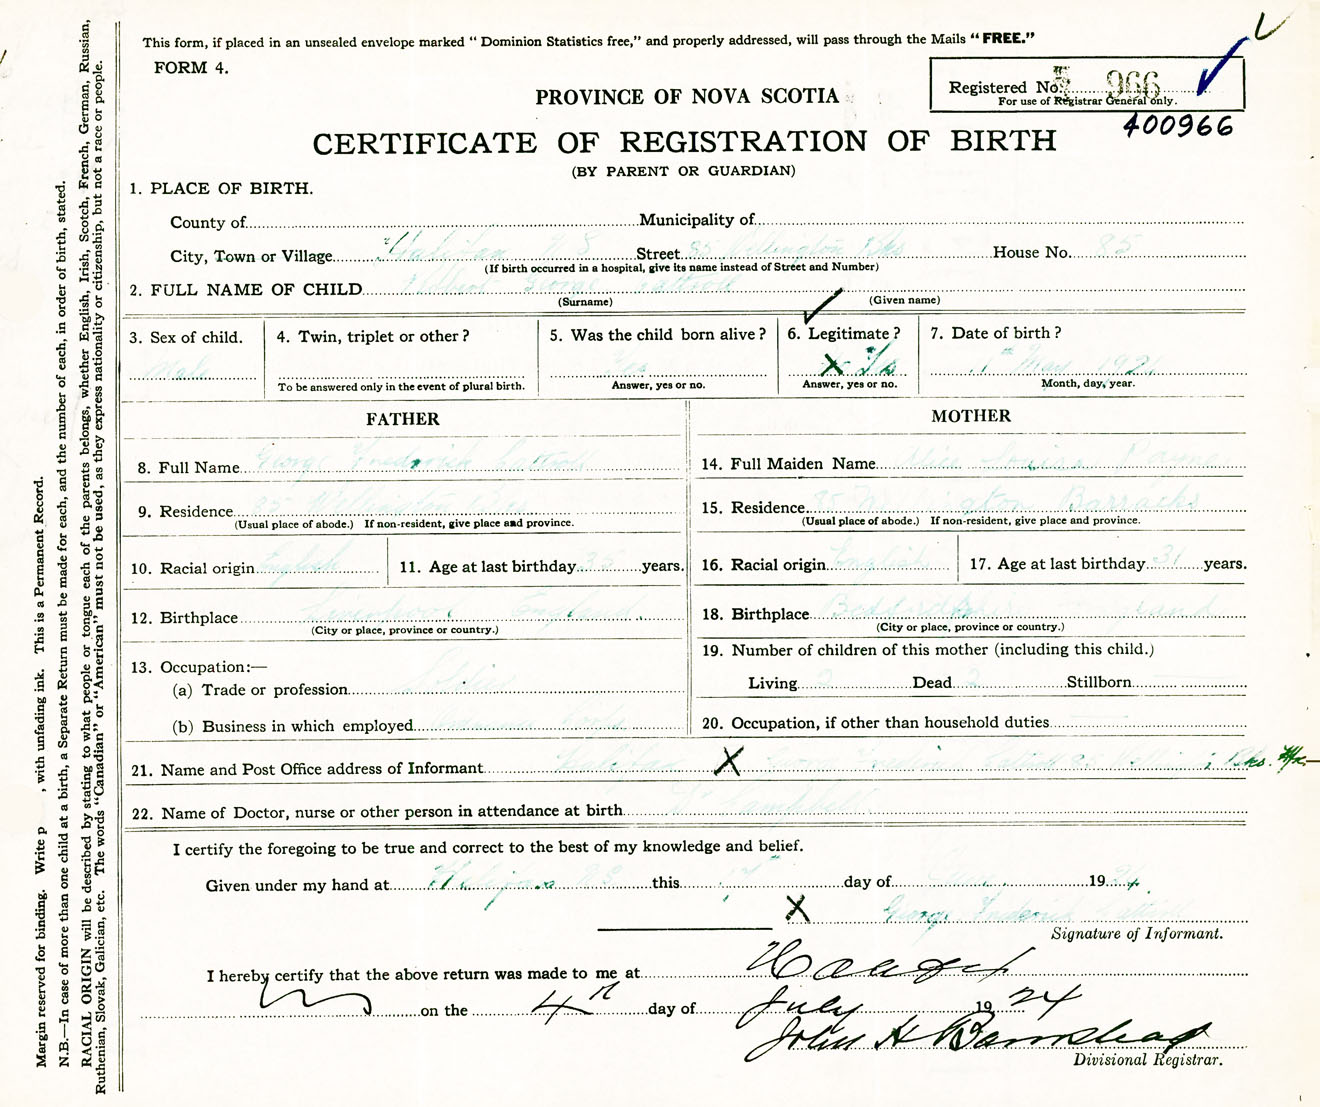 This form, if placed in an unsealed envelope marked "Dominion Statistics free," and properly addressed, will pass through the Mails "FREE."
FORM 4.
Registered No. 966
For use of Registrar General only.
400966
PROVINCE OF NOVA SCOTIA
CERTIFICATE OF REGISTRATION OF BIRTH
(BY PARENT OR GUARDIAN)
1. PLACE OF BIRTH.
County of Municipality of
City, Town or Village Halifax N S Street 85 Wellington Bks House No. 85
(If birth occurred in a hospital, give its name instead of Street and Number)
2. FULL NAME OF CHILD George
(Surname) (Given name)
3. Sex of child. 4. Twin, triplet or other? 5. Was the child born alive? 6. Legitimate? 7. Date of birth?
Male Yes X Yes 1st May 192
To be answered only in the event of plural birth. Answer, yes or no. Answer, yes or no. Month, day, year.
FATHER MOTHER
8. Full Name George Frederick 14. Full Maiden Name Alice Louisa Payne
9. Residence 85 Wellington 15. Residence 85 Barracks
(Usual place of abode.) If non-resident, give place and province. (Usual place of abode.) If non-resident, give place and province.
10. Racial origin English 11. Age at last birthday 35 years. 16. Racial origin English 17. Age at last birthday 31 years.
12. Birthplace England 18. Birthplace England
(City or place, province or country.) (City or place, province or country.)
13. Occupation:— 19. Number of children of this mother (including this child.)
(a) Trade or profession Soldier Living 2 Dead 2 Stillborn
(b) Business in which employed 20. Occupation, if other than household duties
21. Name and Post Office address of Informant Halifax X George Bks. Hfx.
22. Name of Doctor, nurse or other person in attendance at birth Dr Campbell
I certify the foregoing to be true and correct to the best of my knowledge and belief.
Given under my hand at Halifax NS this day of June 1924
X George Frederick
Signature of Informant.
I hereby certify that the above return was made to me at Halifax
on the 4th day of July 1924
John H Barnstead
Divisional Registrar.
Margin reserved for binding. Write p , with unfading ink. This is a Permanent Record.
N.B.—In case of more than one child at a birth, a Separate Return must be made for each, and the number of each, in order of birth, stated.
RACIAL ORIGIN will be described by stating to what people or tongue each of the parents belongs, whether English, Irish, Scotch, French, German, Russian,
Ruthenian, Slovak, Galician, etc. The words "Canadian" or "American" must not be used, as they express nationality or citizenship, but not a race or people.